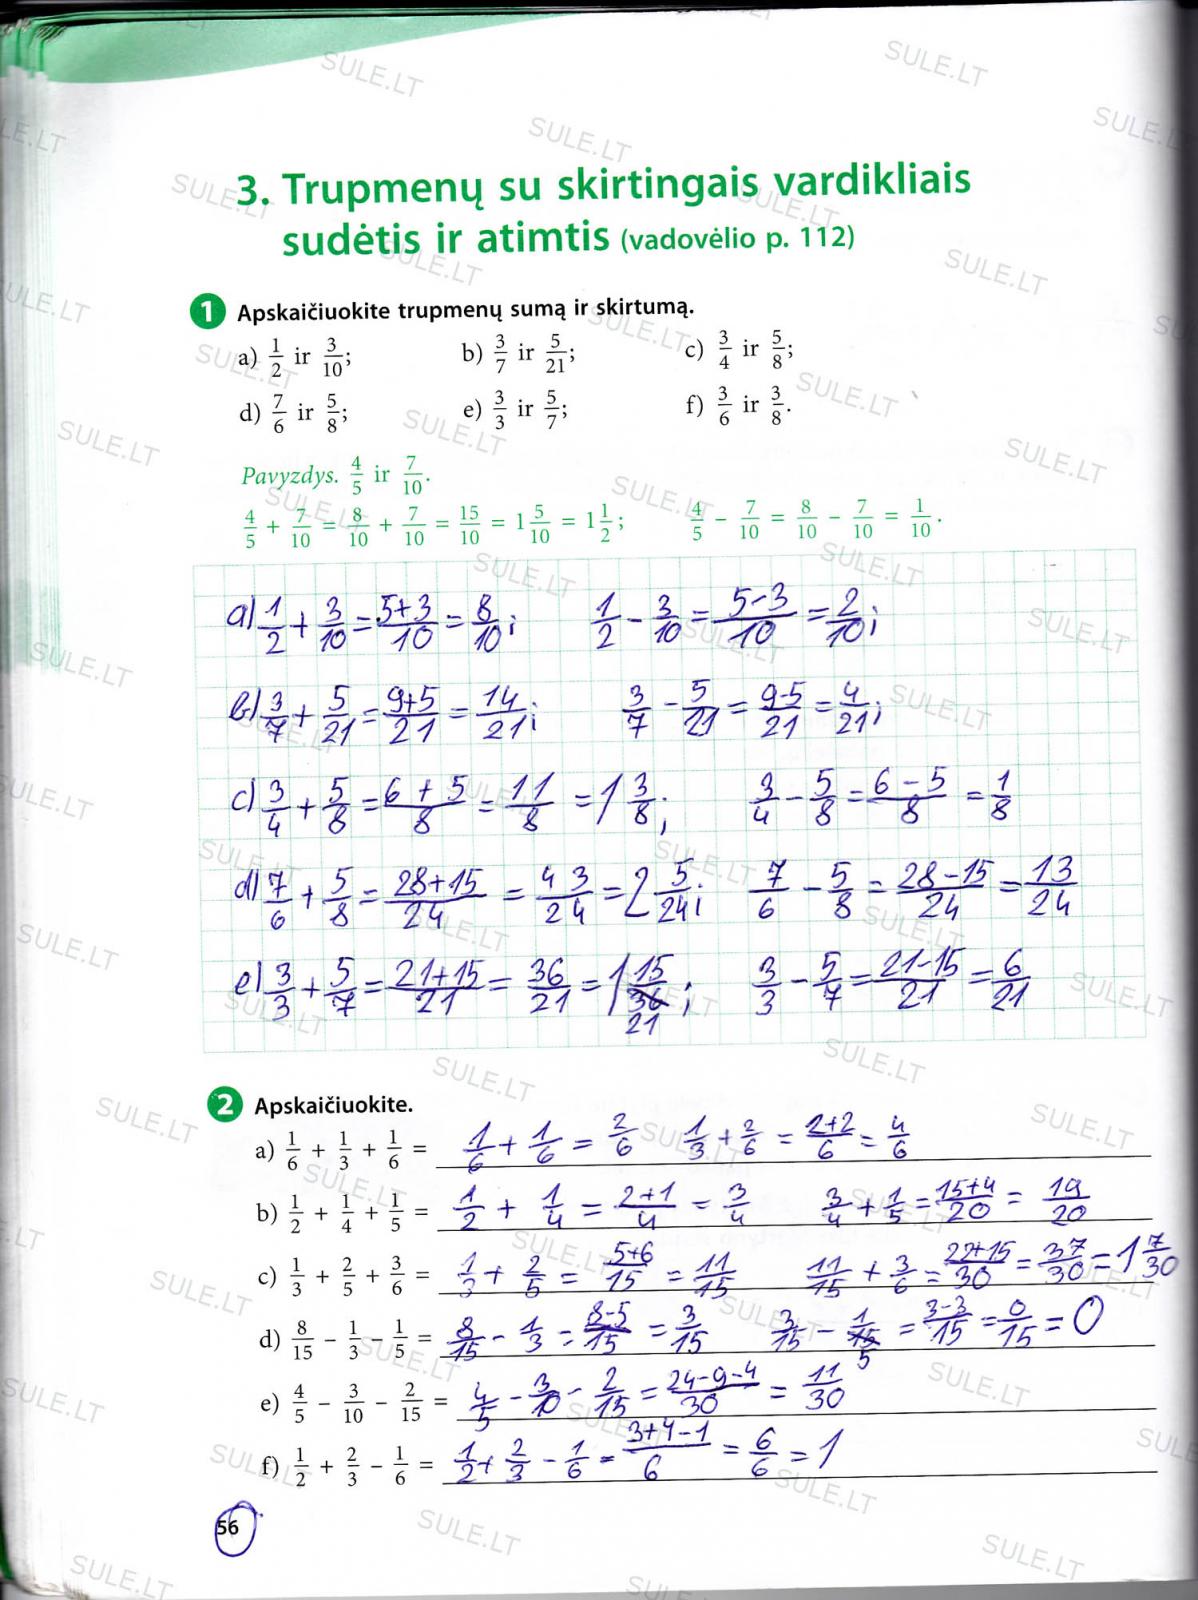 3. Trupmenų su skirtingais vardikliais
sudėtis ir atimtis (vadovėlio p. 112)
1 Apskaičiuokite trupmenų sumą ir skirtumą.
a) 1/2 ir 3/10; b) 3/7 ir 5/21; c) 3/4 ir 5/8;
d) 7/6 ir 5/8; e) 3/3 ir 5/7; f) 3/6 ir 3/8.
Pavyzdys. 4/5 ir 7/10.
4/5 + 7/10 = 8/10 + 7/10 = 15/10 = 1 5/10 = 1 1/2; 4/5 − 7/10 = 8/10 − 7/10 = 1/10.
a) 1/2 + 3/10 = 5+3/10 = 8/10; 1/2 − 3/10 = 5−3/10 = 2/10;
b) 3/7 + 5/21 = 9+5/21 = 14/21; 3/7 − 5/21 = 9−5/21 = 4/21;
c) 3/4 + 5/8 = 6+5/8 = 11/8 = 1 3/8; 3/4 − 5/8 = 6−5/8 = 1/8
d) 7/6 + 5/8 = 28+15/24 = 43/24 = 2 5/24; 7/6 − 5/8 = 28−15/24 = 13/24
e) 3/3 + 5/7 = 21+15/21 = 36/21 = 1 15/21; 3/3 − 5/7 = 21−15/21 = 6/21
2 Apskaičiuokite.
a) 1/6 + 1/3 + 1/6 = 1/6 + 1/6 = 2/6 1/3 + 2/6 = 2+2/6 = 4/6
b) 1/2 + 1/4 + 1/5 = 1/2 + 1/4 = 2+1/4 = 3/4 3/4 + 1/5 = 15+4/20 = 19/20
c) 1/3 + 2/5 + 3/6 = 1/3 + 2/5 = 5+6/15 = 11/15 11/15 + 3/6 = 22+15/30 = 37/30 = 1 7/30
d) 8/15 − 1/3 − 1/5 = 8/15 − 1/3 = 8−5/15 = 3/15 3/15 − 1/5 = 3−3/15 = 0/15 = 0
e) 4/5 − 3/10 − 2/15 = 4/5 − 3/10 − 2/15 = 24−9−4/30 = 11/30
f) 1/2 + 2/3 − 1/6 = 1/2 + 2/3 − 1/6 = 3+4−1/6 = 6/6 = 1
56
SULE.LT